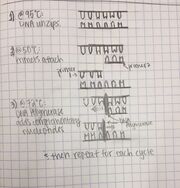 1) @95°C:
DNA unzips.
2) @50°C:
Primers attach
primer
primer 2
3) @72°C:
DNA Polymerase
adds complementary
nucleotides
DNA
Polymerase
then repeat for each cycle